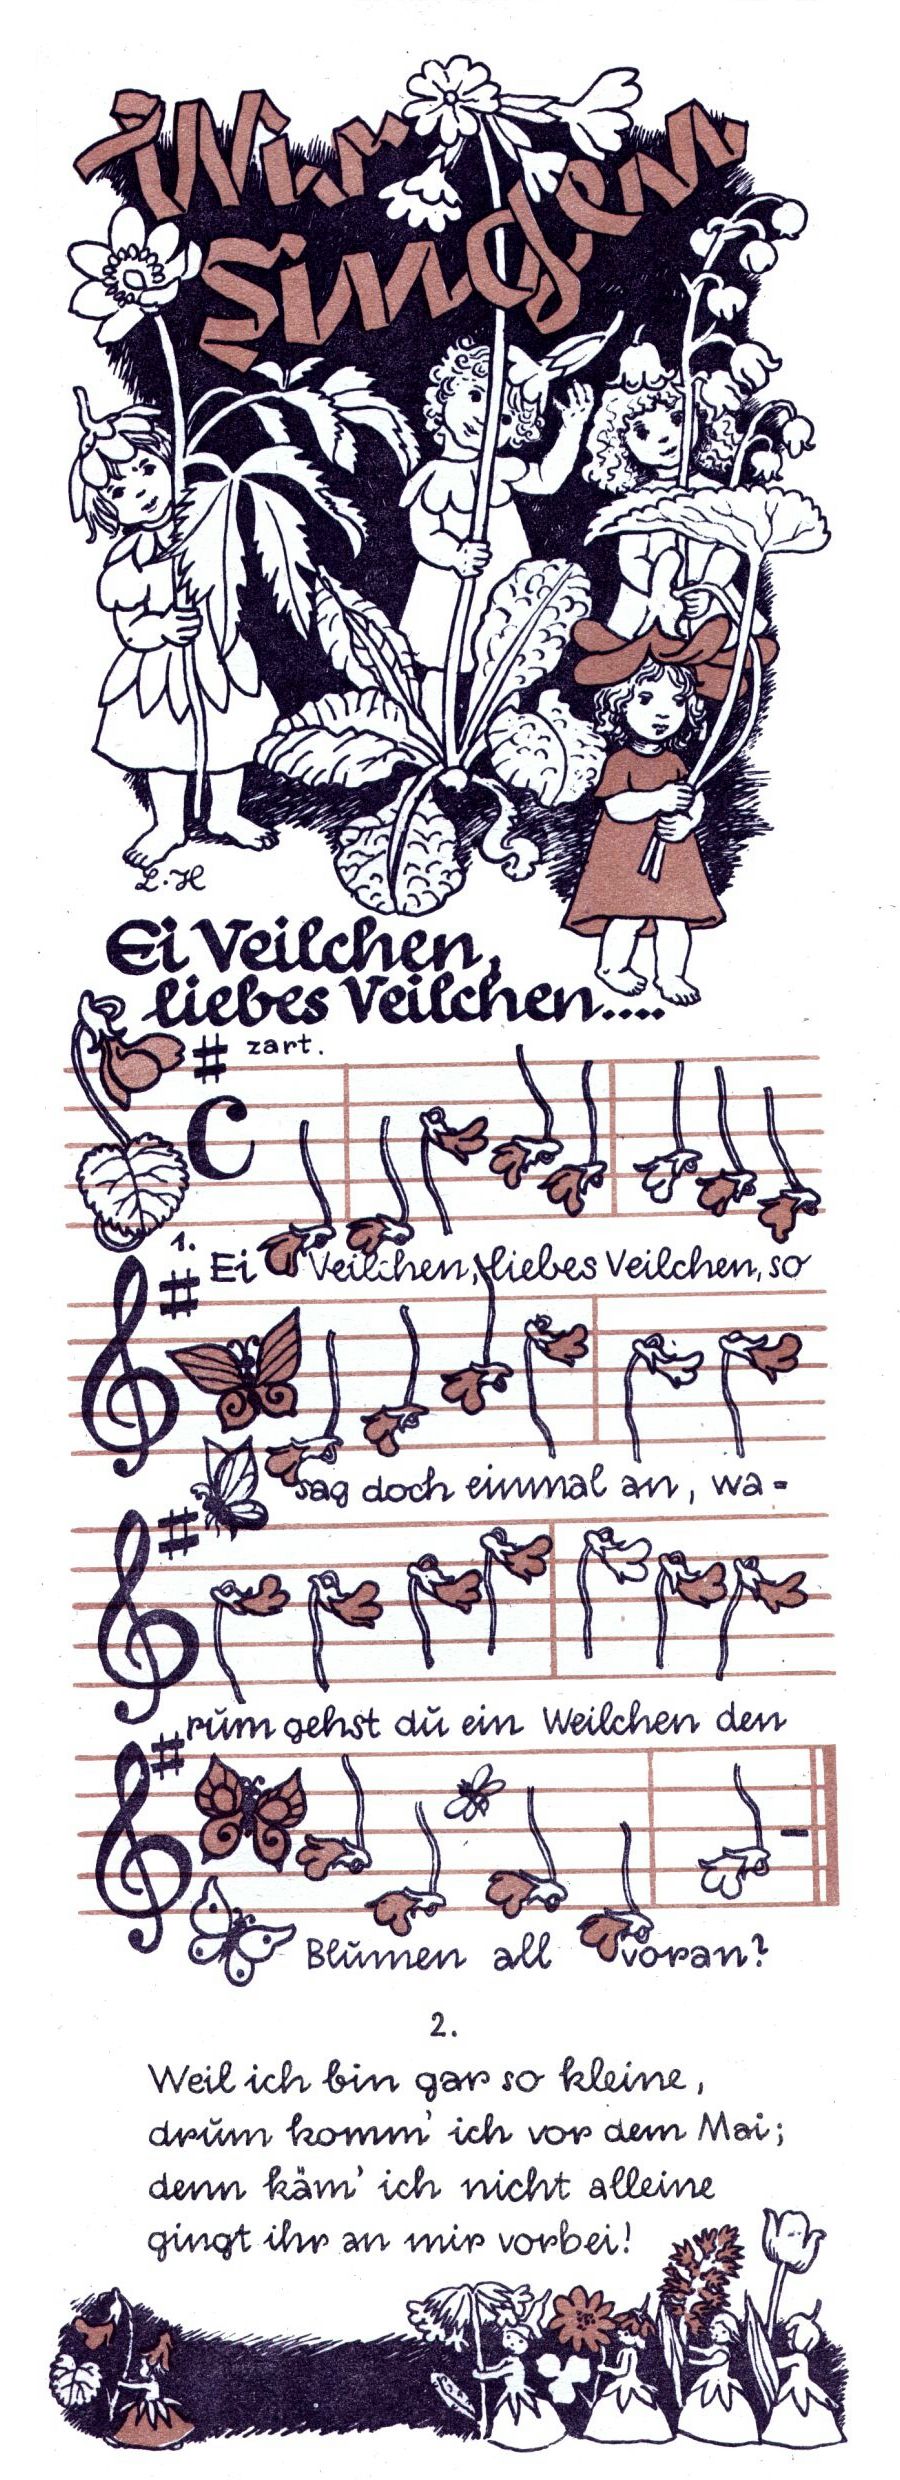 Wir
singen
L.H
Ei Veilchen,
liebes Veilchen....
zart.
1. Ei Veilchen, liebes Veilchen, so
sag doch einmal an, wa=
rŭm gehst dŭ ein Weilchen den
Blŭmen all voran?
2.
Weil ich bin gar so kleine,
drŭm komm' ich vor dem Mai;
denn käm' ich nicht alleine
gingt ihr an mir vorbei!